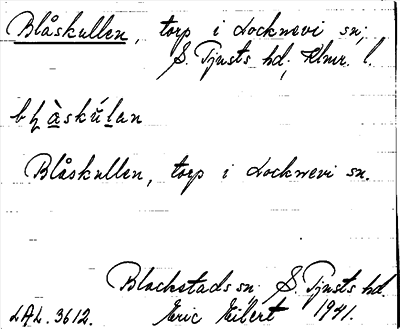 Blåskullen, torp i Locknevi sn;
S. Tjusts hd, Klmr. l.
bɭàskúlan
Blåskullen, torp i Locknevi sn.
Blackstads sn S. Tjusts hd.
LAL. 3612. Eric Eilert 1941.